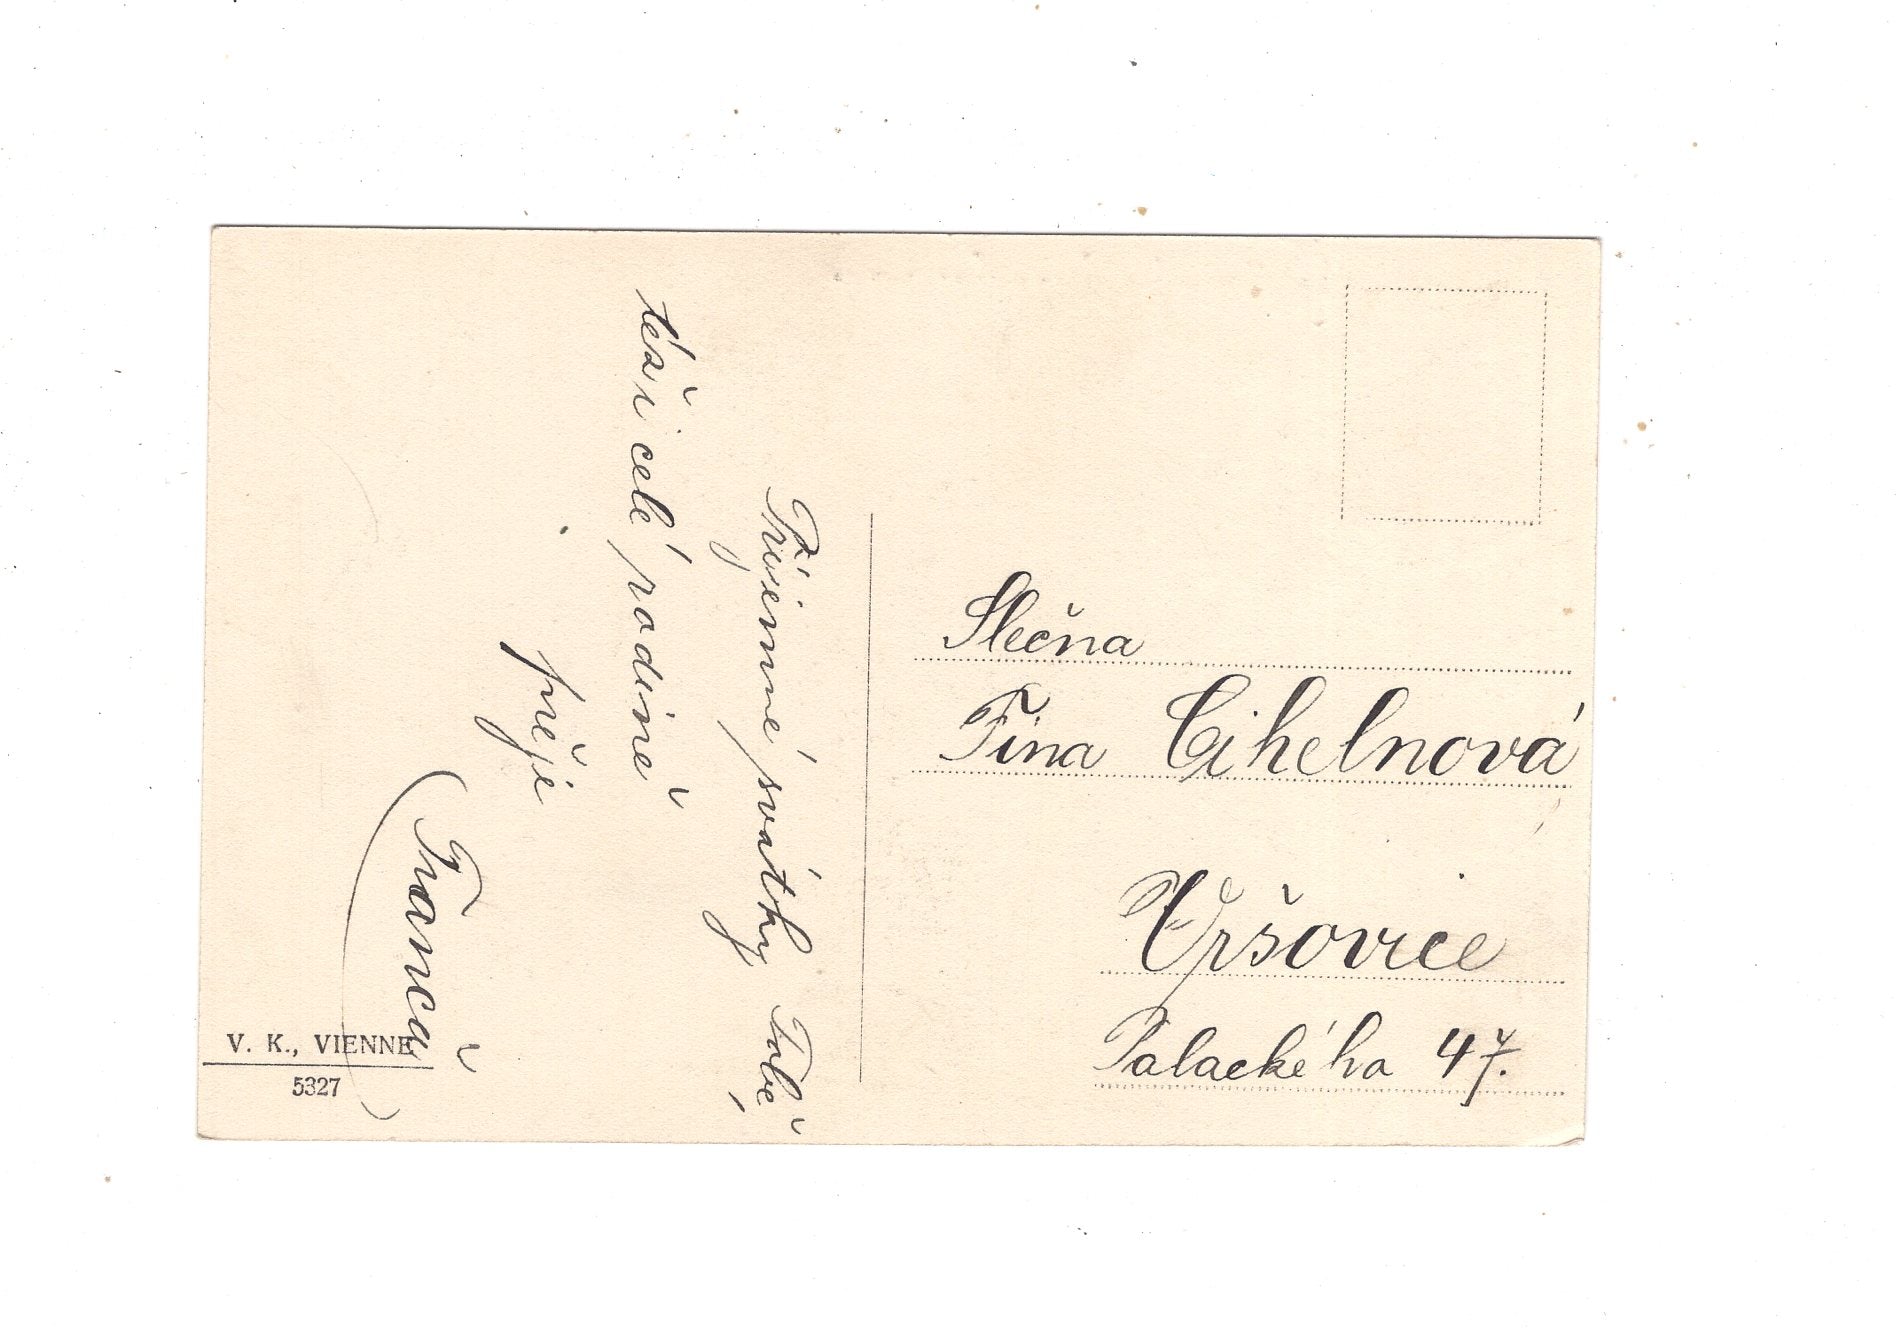 Příjemné svátky Tobě,
též i celé rodině
přeje
Franca
Slečna
Fina Cihelnová
Vršovice
Palackého 47.
V. K., VIENNE
5327